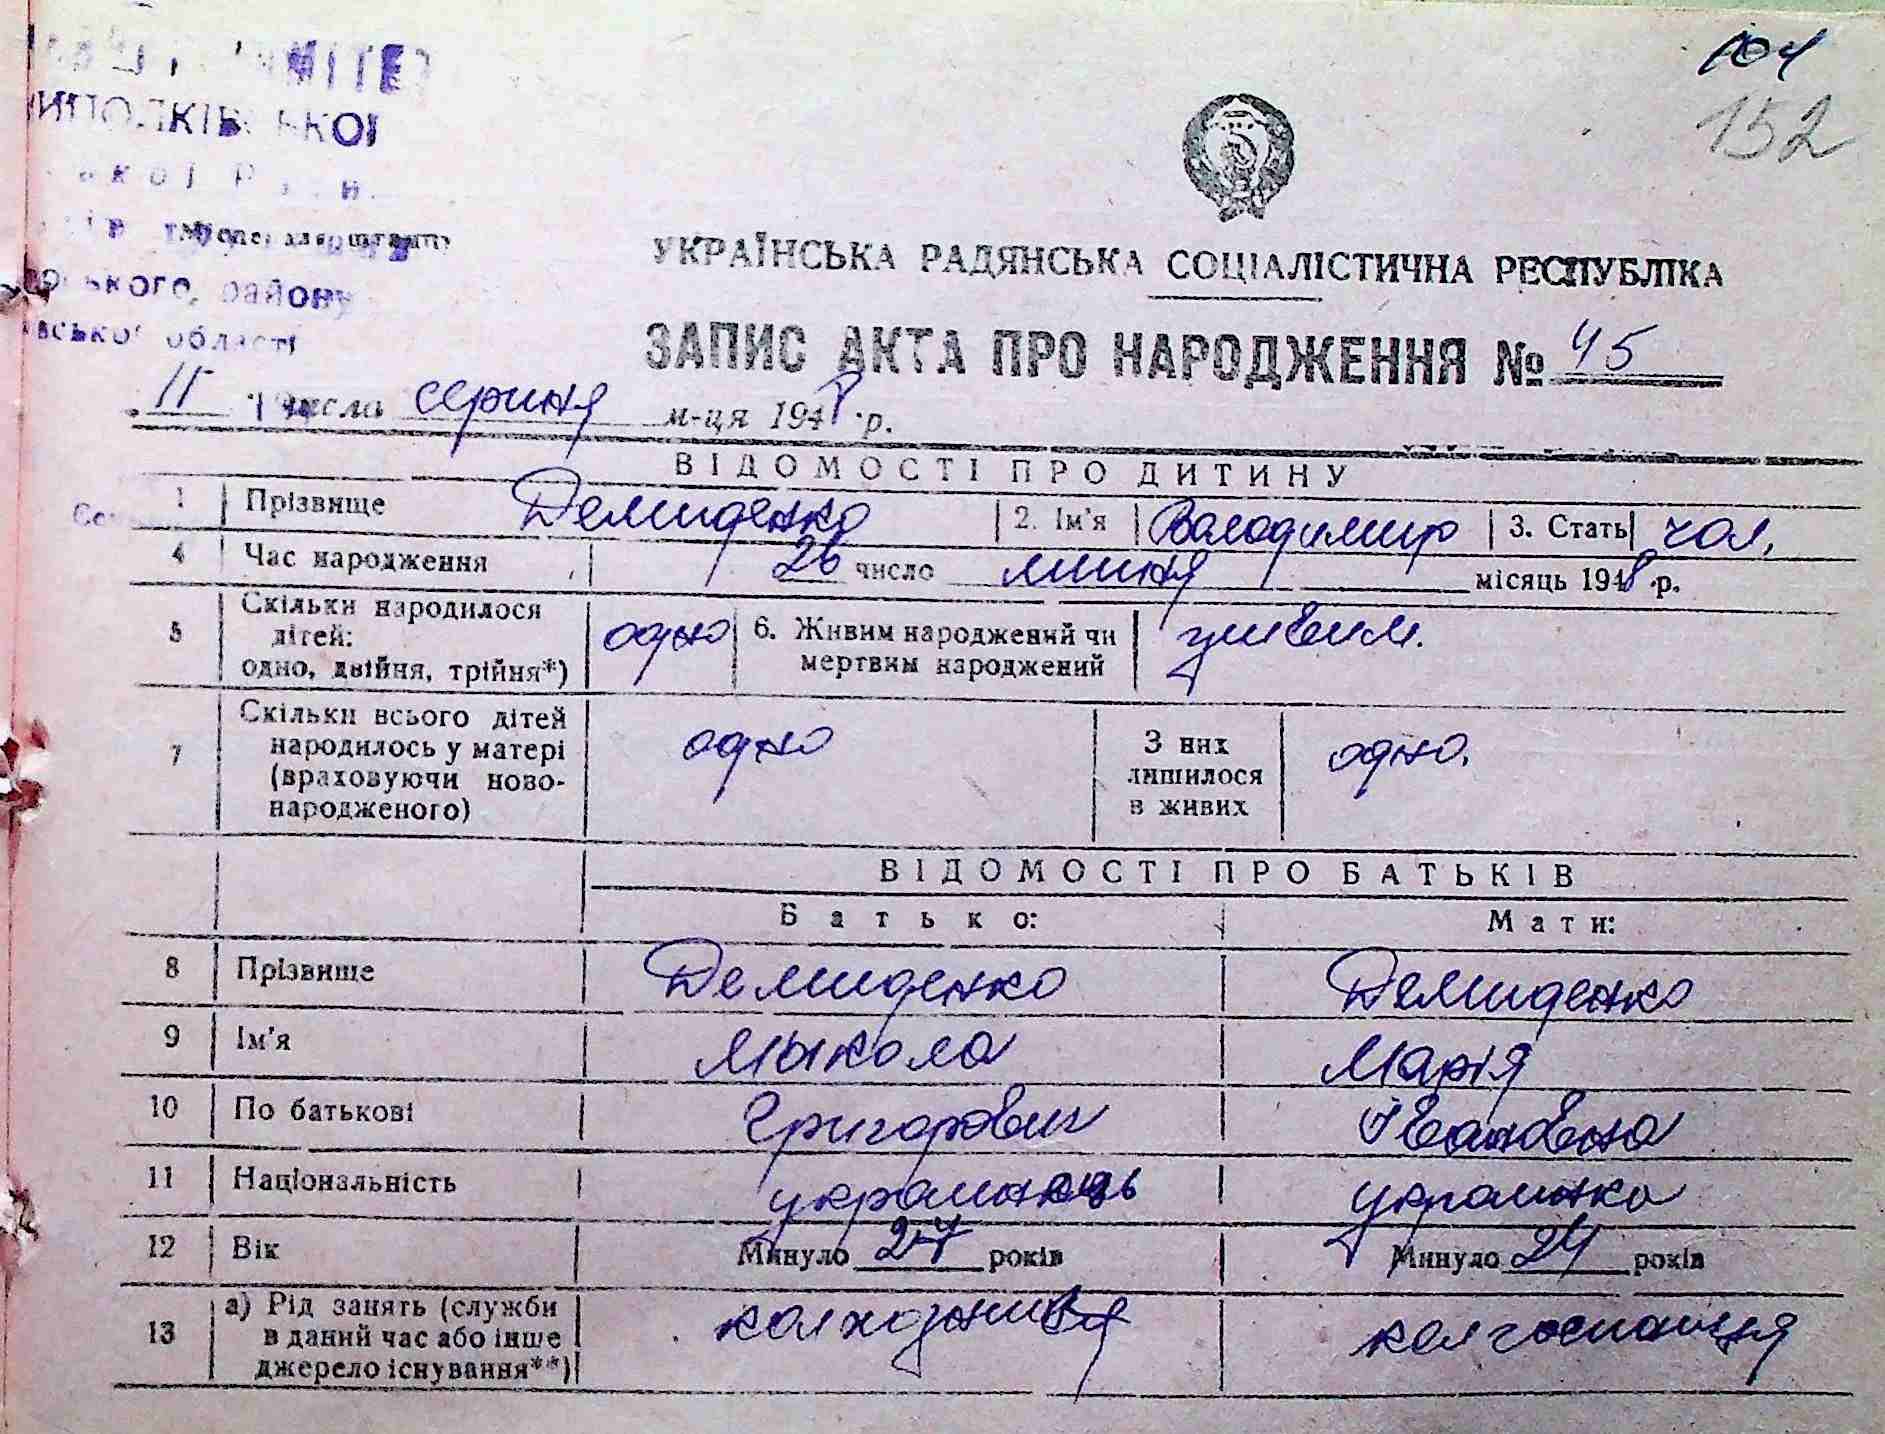 104
152
УКРАЇНСЬКА РАДЯНСЬКА СОЦІАЛІСТИЧНА РЕСПУБЛІКА
Місце для штампу
району
області
ЗАПИС АКТА ПРО НАРОДЖЕННЯ № 45
11 числа серпня м-ця 1948 р.
ВІДОМОСТІ ПРО ДИТИНУ
1 Прізвище Демиденко 2. Ім'я Володимир 3. Стать чол.
4 Час народження 26 число липня місяць 1948 р.
5 Скільки народилося
дітей:
одно, двійня, трійня*) одно 6. Живим народжений чи
мертвим народжений живим.
7 Скільки всього дітей
народилось у матері
(враховуючи ново-
народженого) одно З них
лишилося
в живих одно.
ВІДОМОСТІ ПРО БАТЬКІВ
Батько: Мати:
8 Прізвище Демиденко Демиденко
9 Ім'я Мыкола Марія
10 По батькові Григорович Івановна
11 Національність украинець украинка
12 Вік Минуло 27 років Минуло 24 років
13 а) Рід занять (служби
в даний час або інше
джерело існування**) колгоспниця